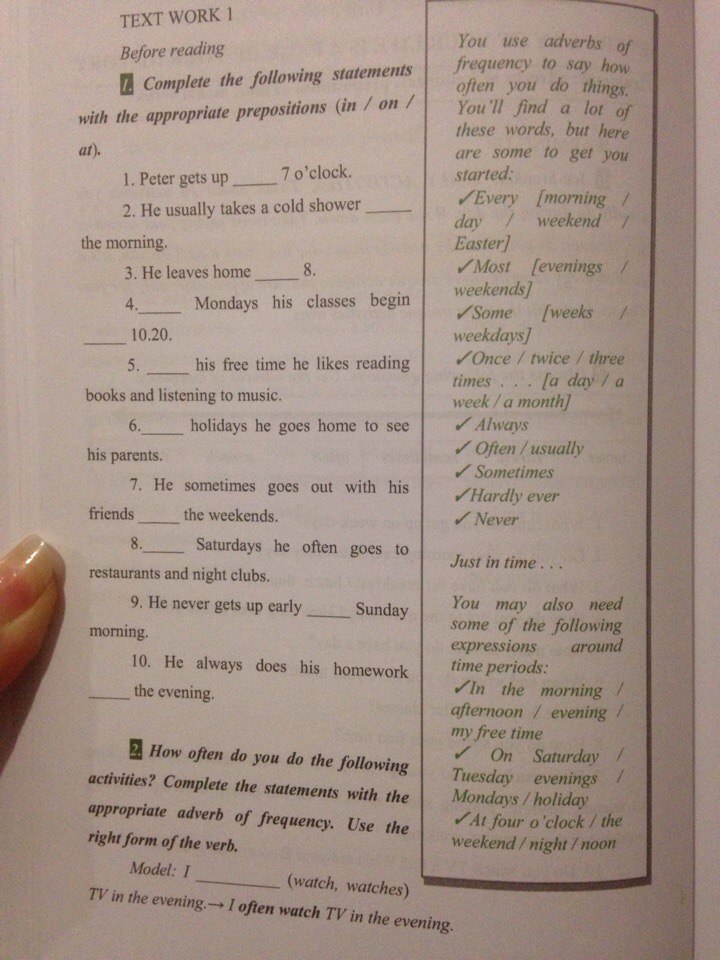 TEXT WORK 1
Before reading
1. Complete the following statements
with the appropriate prepositions (in / on /
at).
1. Peter gets up _____ 7 o'clock.
2. He usually takes a cold shower _____
the morning.
3. He leaves home _____ 8.
4._____ Mondays his classes begin
_____ 10.20.
5. _____ his free time he likes reading
books and listening to music.
6._____ holidays he goes home to see
his parents.
7. He sometimes goes out with his
friends _____ the weekends.
8._____ Saturdays he often goes to
restaurants and night clubs.
9. He never gets up early _____ Sunday
morning.
10. He always does his homework
_____ the evening.
2. How often do you do the following
activities? Complete the statements with the
appropriate adverb of frequency. Use the
right form of the verb.
Model: I __________ (watch, watches)
TV in the evening.→ I often watch TV in the evening.
You use adverbs of
frequency to say how
often you do things.
You'll find a lot of
these words, but here
are some to get you
started:
✓Every [morning /
day / weekend /
Easter]
✓Most [evenings /
weekends]
✓Some [weeks /
weekdays]
✓Once / twice / three
times . . . [a day / a
week / a month]
✓ Always
✓ Often / usually
✓ Sometimes
✓Hardly ever
✓ Never
Just in time . . .
You may also need
some of the following
expressions around
time periods:
✓In the morning /
afternoon / evening /
my free time
✓ On Saturday /
Tuesday evenings /
Mondays / holiday
✓At four o'clock / the
weekend / night / noon